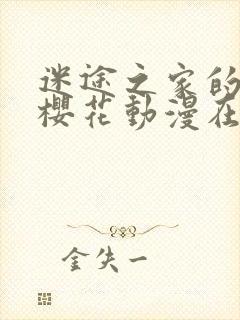 迷途之家的
櫻花動漫在
金失一